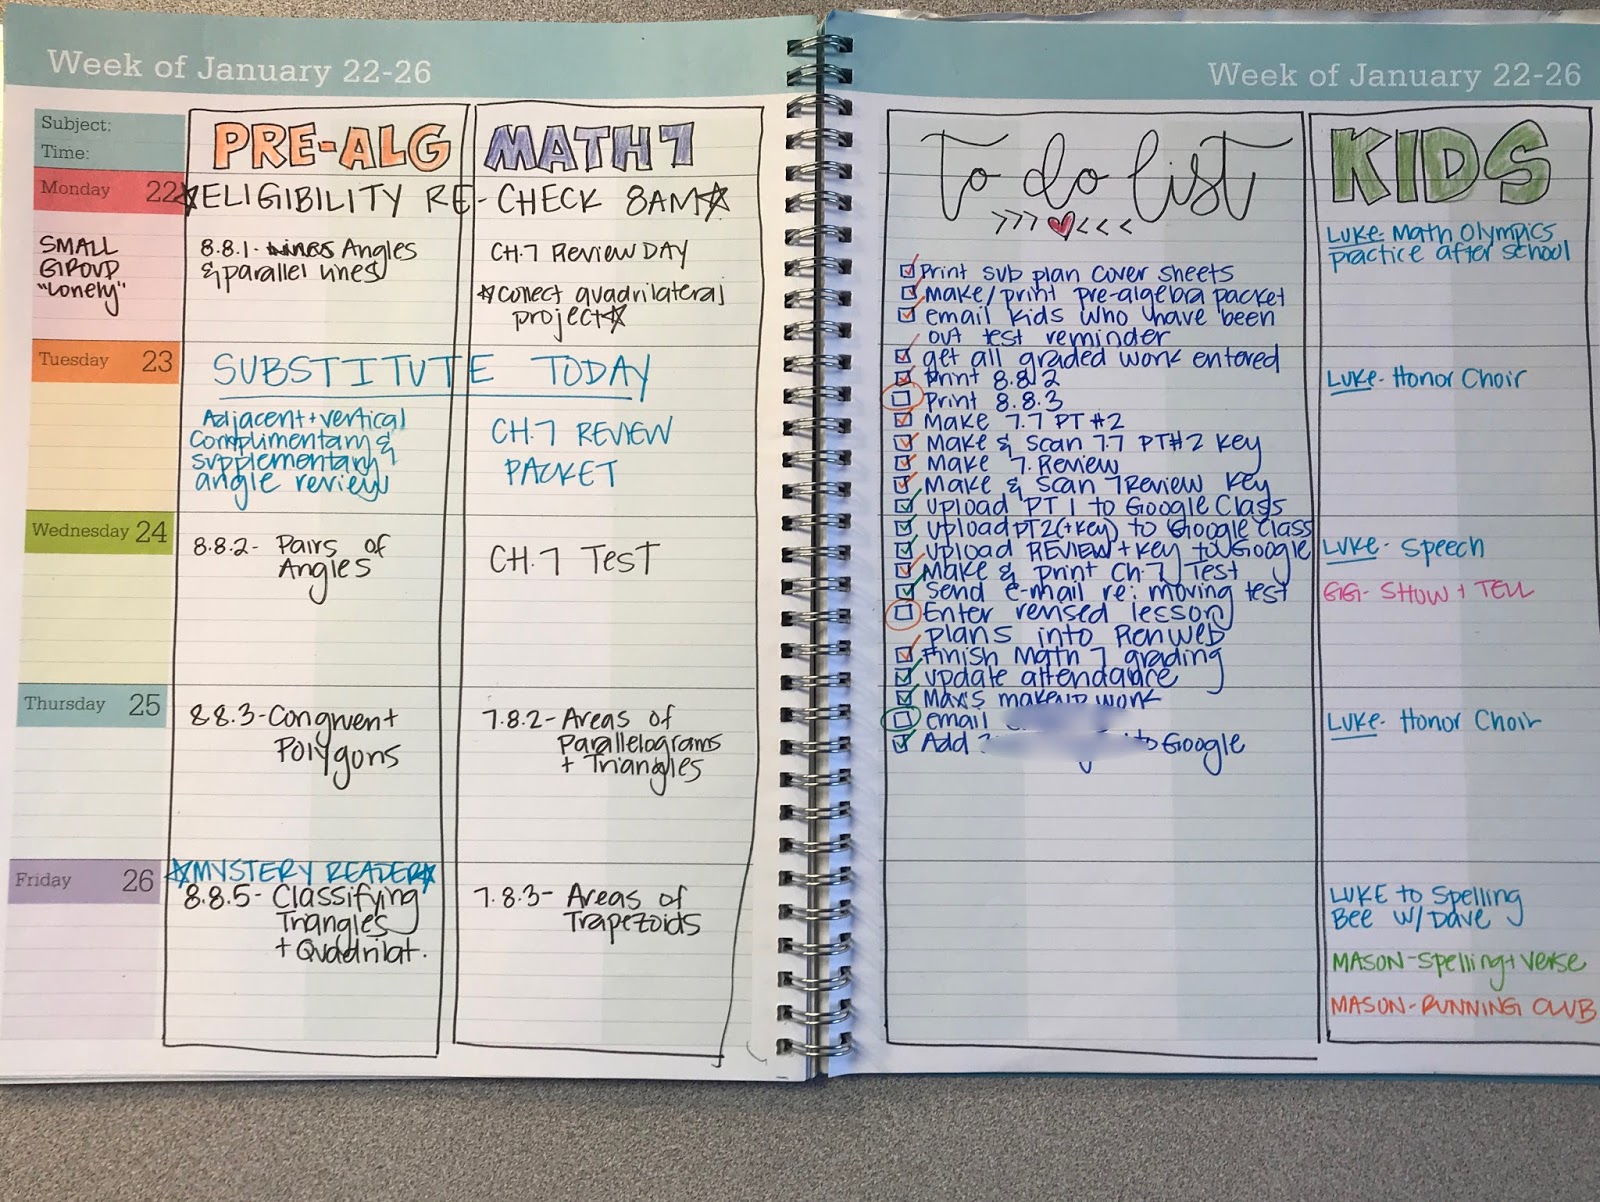 Week of January 22-26
Subject:
Time:
PRE-ALG
MATH 7
Monday 22
☆ELIGIBILITY RE-CHECK 8AM☆
SMALL
GROUP
"Lonely"
8.8.1- Angles
& parallel lines
CH.7 Review DAY
☆collect quadrilateral
project☆
Tuesday 23
SUBSTITUTE TODAY
Adjacent + vertical
Complimentary &
supplementary
angle review
CH.7 REVIEW
PACKET
Wednesday 24
8.8.2- Pairs of
Angles
CH.7 TEST
Thursday 25
8.8.3-Congruent
Polygons
7.8.2-Areas of
Parallelograms
+ Triangles
Friday 26
☆MYSTERY READER☆
8.8.5- Classifying
Triangles
+ Quadrilat.
7.8.3- Areas of
Trapezoids
Week of January 22-26
to do list
>>> <<<
Print sub plan cover sheets
Make/print pre-algebra packet
email kids who have been
out test reminder
get all graded work entered
Print 8.8.2
Print 8.8.3
Make 7.7 PT #2
Make & Scan 7.7 PT#2 Key
Make 7. Review
Make & Scan 7 Review Key
Upload PT 1 to Google Class
Upload PT2(+Key) to Google Class
Upload REVIEW + Key to Google
Make & print Ch.7 Test
Send e-mail re: moving test
Enter revised lesson
plans into Renweb
Finish Math 7 grading
update attendance
Max's makeup work
email
Add to Google
KIDS
LUKE- Math Olympics
practice after school
LUKE- Honor Choir
LUKE- Speech
GIGI- SHOW + TELL
LUKE- Honor Choir
LUKE to Spelling
Bee w/Dave
MASON-Spelling+Verse
MASON-RUNNING CLUB